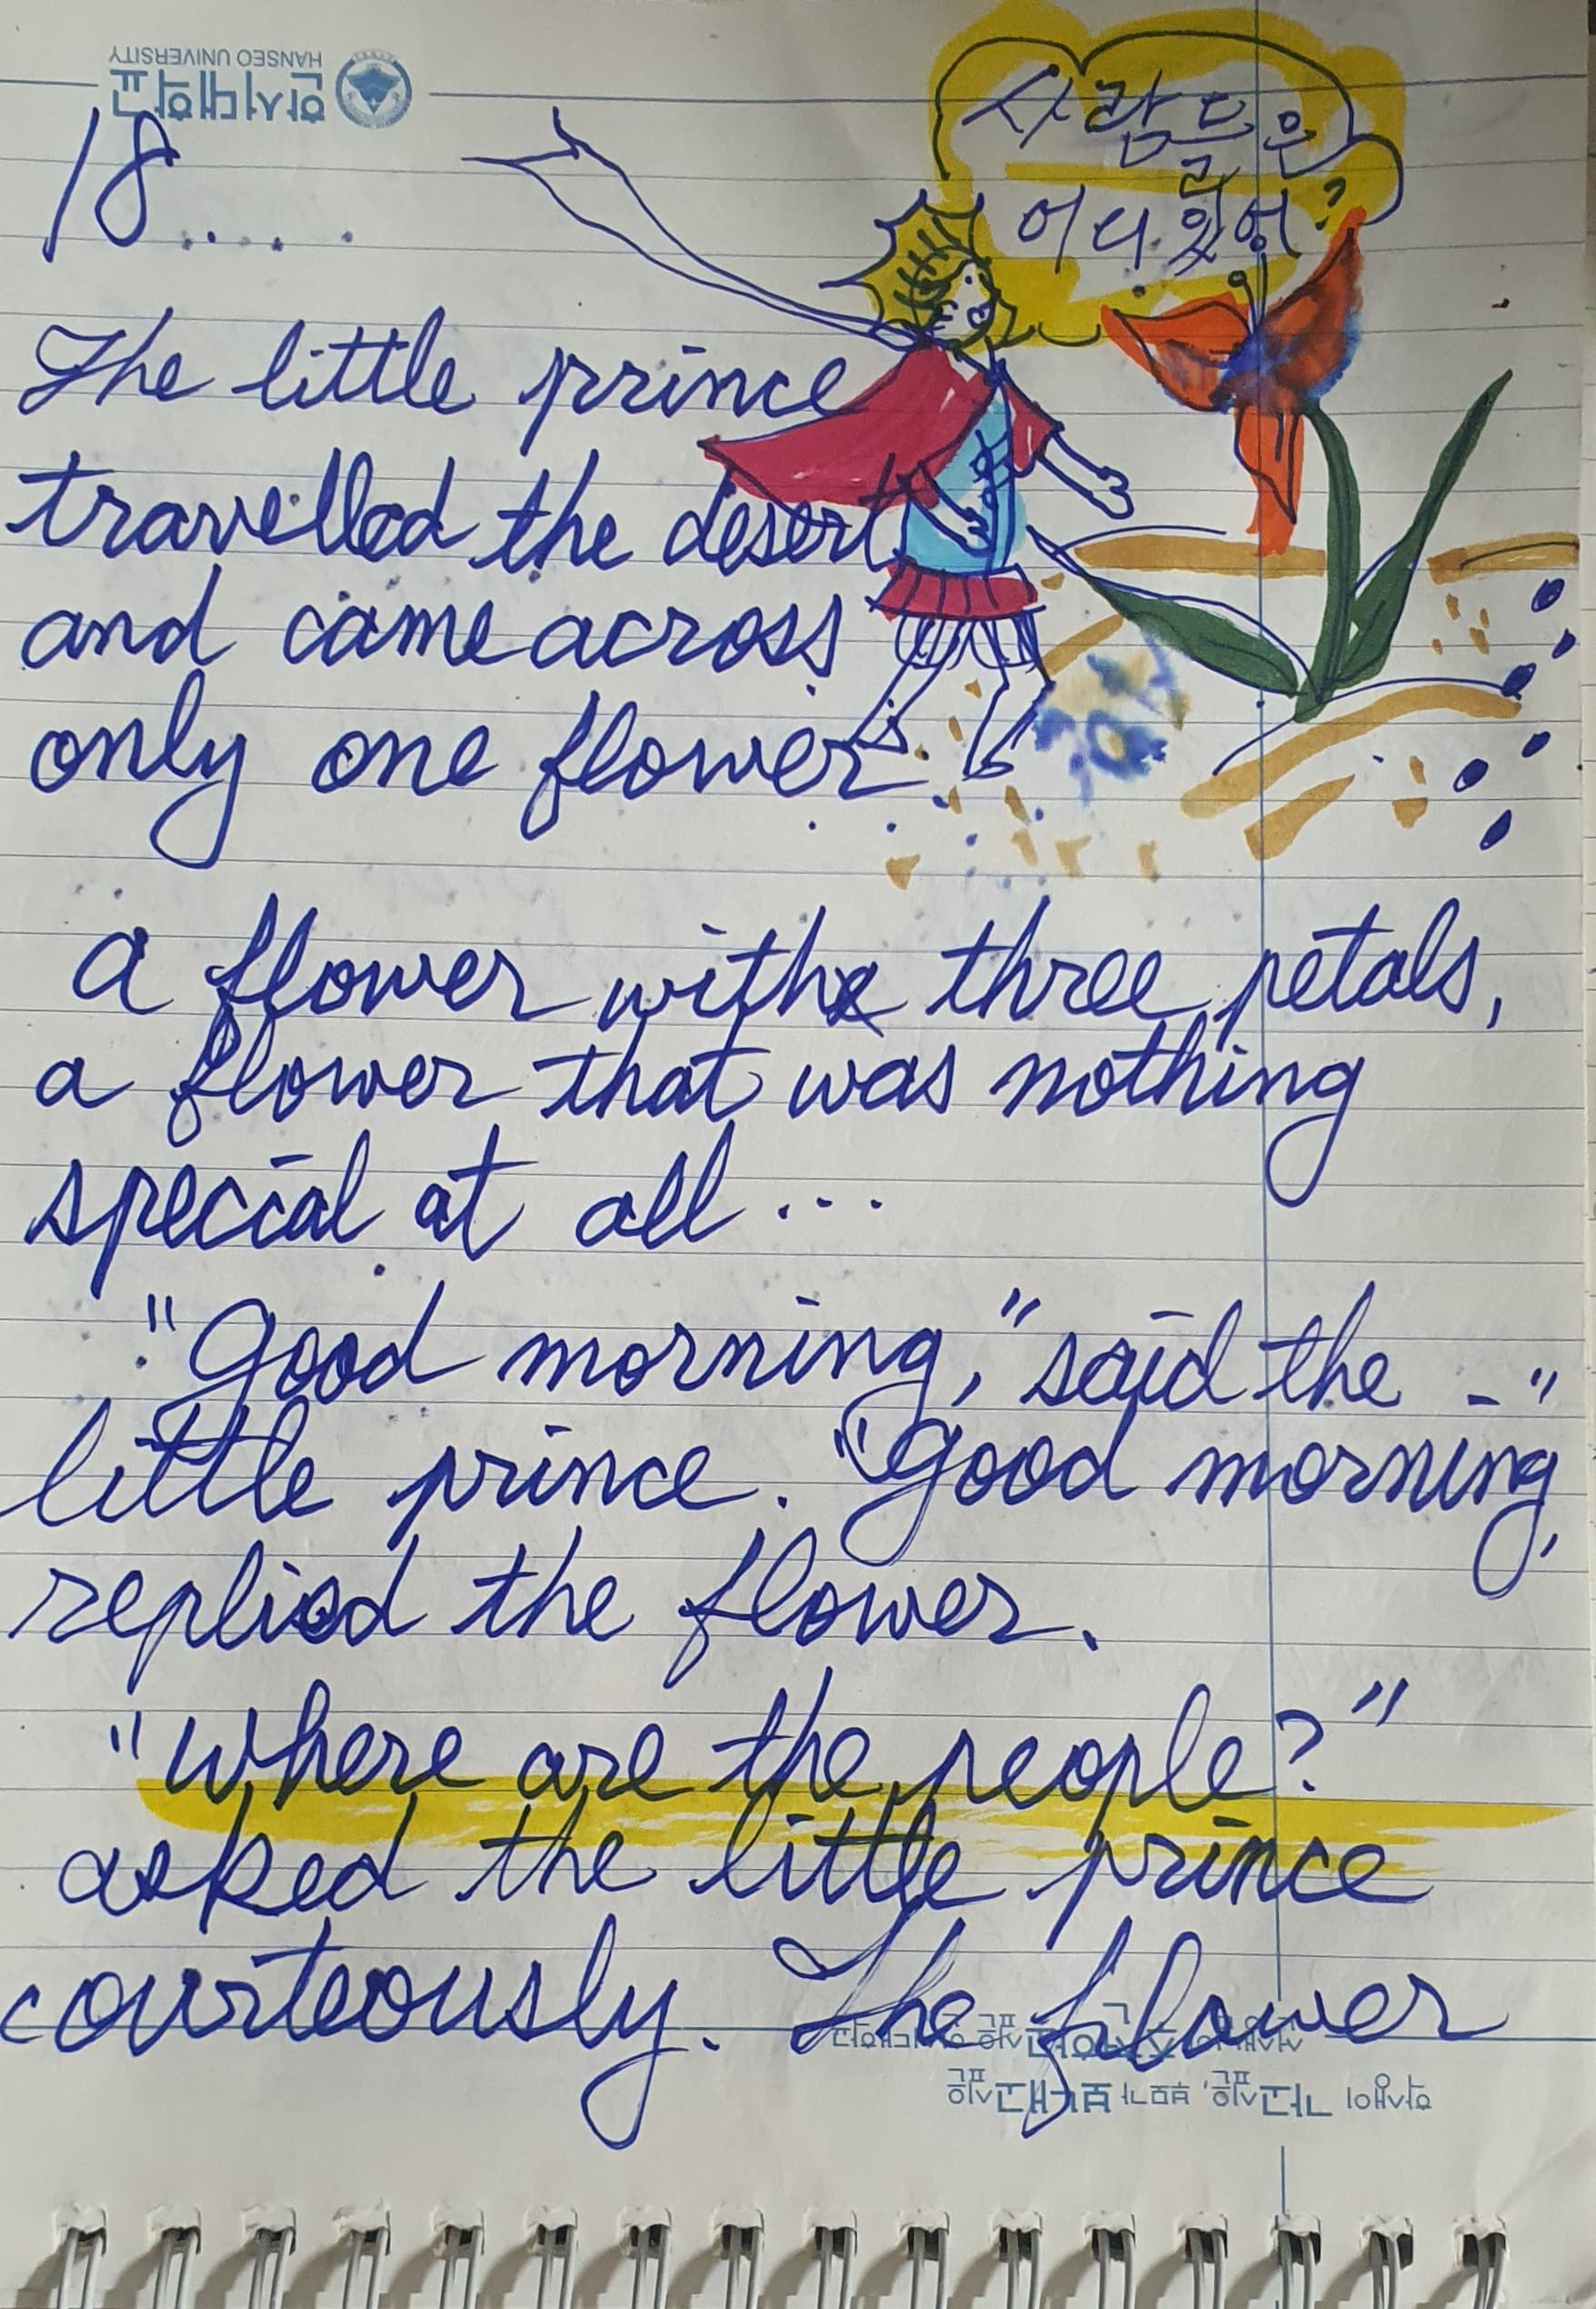 한서대학교
HANSEO UNIVERSITY
18.....
사람들은
어디 있어?
The little prince
travelled the desert
and came across
only one flower.
A flower with three petals,
a flower that was nothing
special at all...
"Good morning," said the
little prince. "Good morning,"
replied the flower.
"Where are the people?"
asked the little prince
courteously. The flower